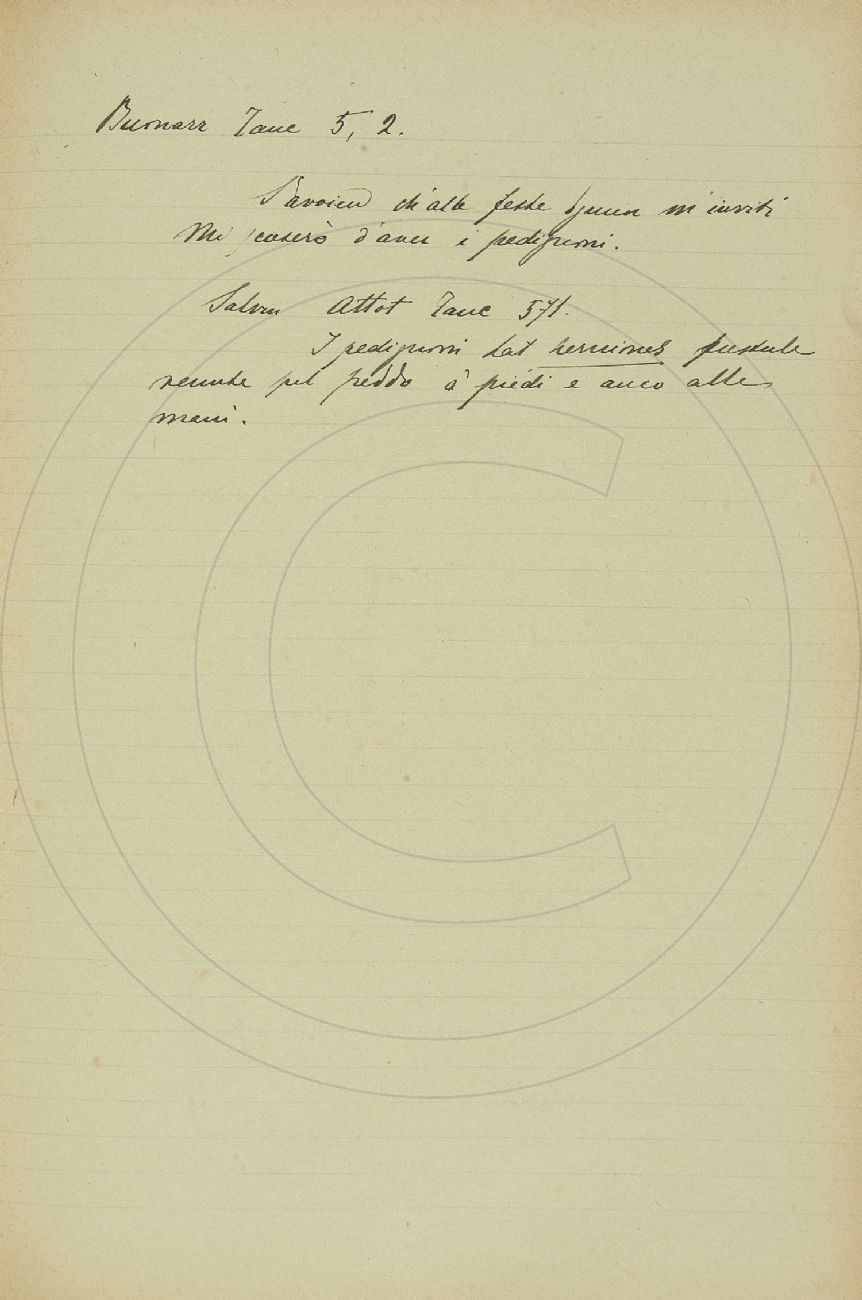 Buonarr Tanc 5, 2.
S'avvien ch'alle feste ognun m'inviti
Mi scuserò d'aver i pedignoni.
Salvin Annot Tanc 571.
I pedignoni lat perniones pustule
venute pel freddo a' piedi e anco alle
mani.